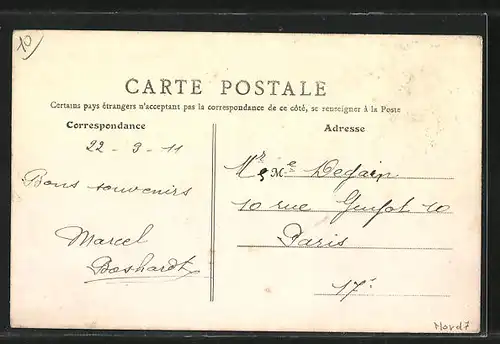 10
CARTE POSTALE
Certains pays étrangers n'acceptant pas la correspondance de ce côté, se renseigner à la Poste
Correspondance
Adresse
22 - 3 - 11
Mr & Me Degain
Bons souvenirs
10 rue Guyot 10
Marcel
Paris
Boshardt
17e